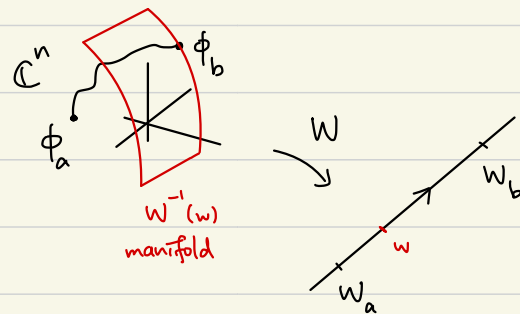 ℂⁿ
ϕ_b
ϕ_a
W
W⁻¹(w)
manifold
W_b
w
W_a